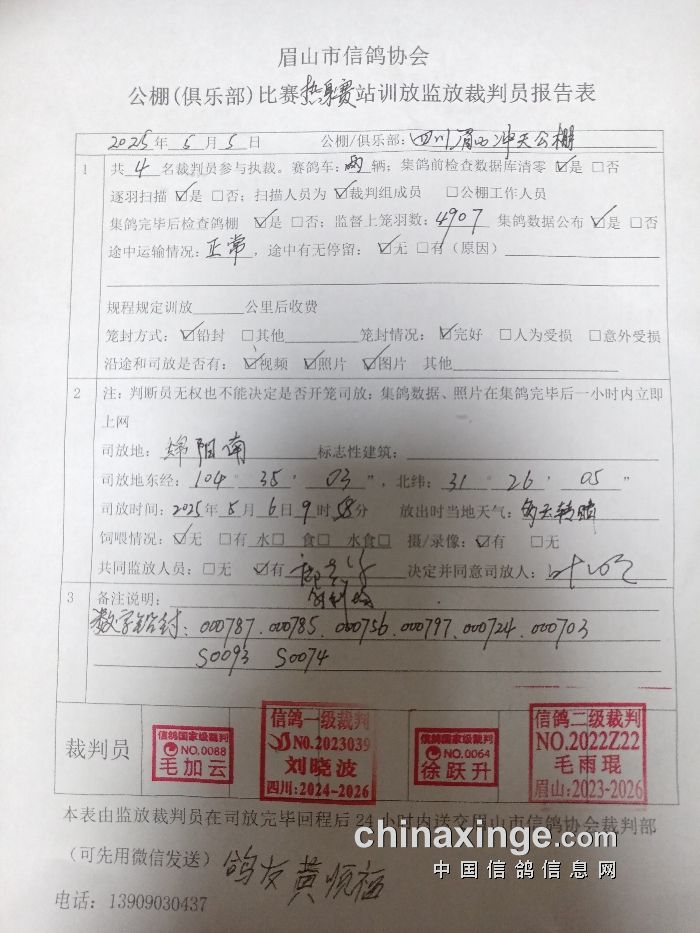 眉山市信鸽协会
公棚(俱乐部)比赛热身赛站训放监放裁判员报告表
2025年5月5日 公棚/俱乐部:四川眉山冲天公棚
1 共4名裁判员参与执裁。赛鸽车:两辆;集鸽前检查数据库清零 ☑是 □否
逐羽扫描 ☑是 □否;扫描人员为 ☑裁判组成员 □公棚工作人员
集鸽完毕后检查鸽棚 ☑是 □否;监督上笼羽数:4907 集鸽数据公布 ☑是 □否
途中运输情况:正常,途中有无停留:☑无 □有(原因)
规程规定训放____公里后收费
笼封方式:☑铅封 □其他 笼封情况:☑完好 □人为受损 □意外受损
沿途和司放是否有:☑视频 ☑照片 ☑图片 其他
2 注:判断员无权也不能决定是否开笼司放;集鸽数据、照片在集鸽完毕后一小时内立即
上网
司放地:绵阳南 标志性建筑:
司放地东经:104°35′03″,北纬:31°26′05″
司放时间:2025年5月6日9时58分 放出时当地天气:多云转晴
饲喂情况:☑无 □有 水□ 食□ 水食□ 摄/录像:☑有 □无
共同监放人员:□无 ☑有 决定并同意司放人:
3 备注说明:
数字铅封:000787.000785.000756.000797.000724.000703
S0093 S0074
裁判员
信鸽国家级裁判
NO.0088
毛加云
信鸽一级裁判
NO.2023039
刘晓波
四川:2024-2026
信鸽国家级裁判
NO.0064
徐跃升
信鸽二级裁判
NO.2022Z22
毛雨琨
眉山:2023-2026
本表由监放裁判员在司放完毕回程后24小时内送交眉山市信鸽协会裁判部
(可先用微信发送) 鸽友黄顺
电话:13909030437
chinaxinge.com
中国信鸽信息网